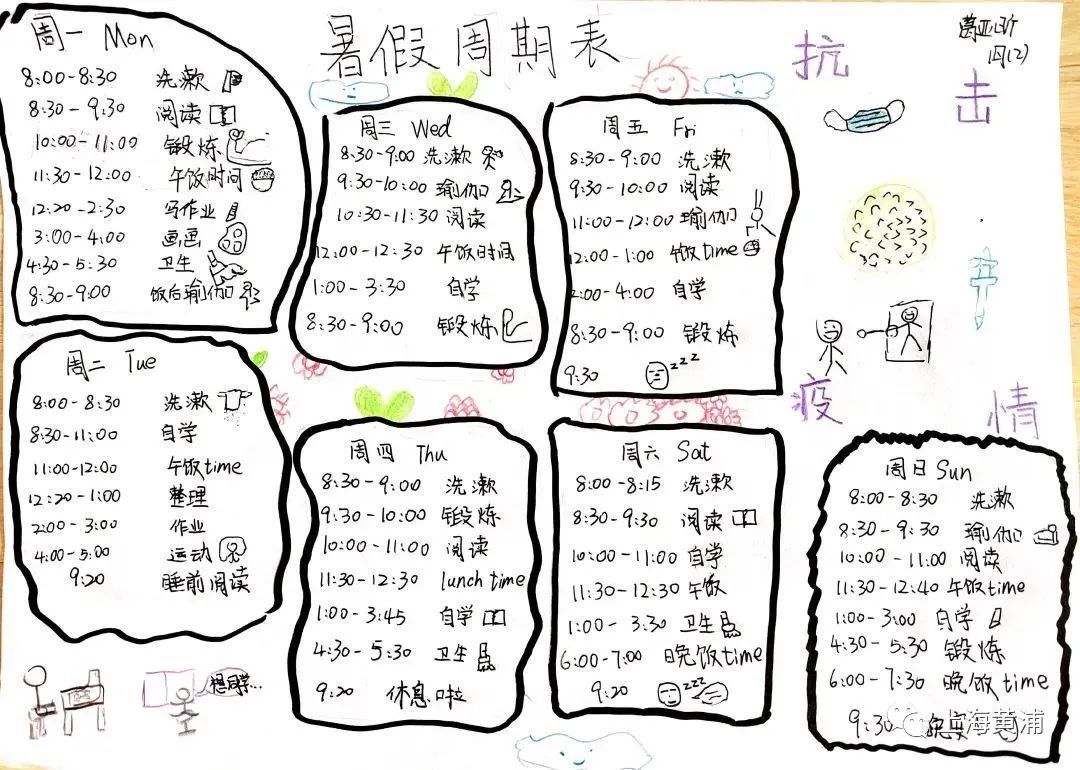 暑假周期表
周一 Mon
8:00-8:30 洗漱
8:30-9:30 阅读
10:00-11:00 锻炼
11:30-12:00 午饭时间
12:20-2:30 写作业
3:00-4:00 画画
4:30-5:30 卫生
8:30-9:00 饭后瑜伽
周二 Tue
8:00-8:30 洗漱
8:30-11:00 自学
11:00-12:00 午饭time
12:20-1:00 整理
2:00-3:00 作业
4:00-5:00 运动
9:20 睡前阅读
周三 Wed
8:30-9:00 洗漱
9:30-10:00 瑜伽
10:30-11:30 阅读
12:00-12:30 午饭时间
1:00-3:30 自学
8:30-9:00 锻炼
周四 Thu
8:30-9:00 洗漱
9:30-10:00 锻炼
10:00-11:00 阅读
11:30-12:30 lunch time
1:00-3:45 自学
4:30-5:30 卫生
9:20 休息啦
周五 Fri
8:30-9:00 洗漱
9:30-10:00 阅读
11:00-12:00 瑜伽
12:00-1:00 午饭time
2:00-4:00 自学
8:30-9:00 锻炼
9:30 zzz
周六 Sat
8:00-8:15 洗漱
8:30-9:30 阅读
10:00-11:00 自学
11:30-12:30 午饭
1:00-3:30 卫生
6:00-7:00 晚饭time
9:20 zzz
抗击
疫情
周日 Sun
8:00-8:30 洗漱
8:30-9:30 瑜伽
10:00-11:00 阅读
11:30-12:40 午饭time
1:00-3:00 自学
4:30-5:30 锻炼
6:00-7:30 晚饭time
9:30
上海黄浦
想同学...